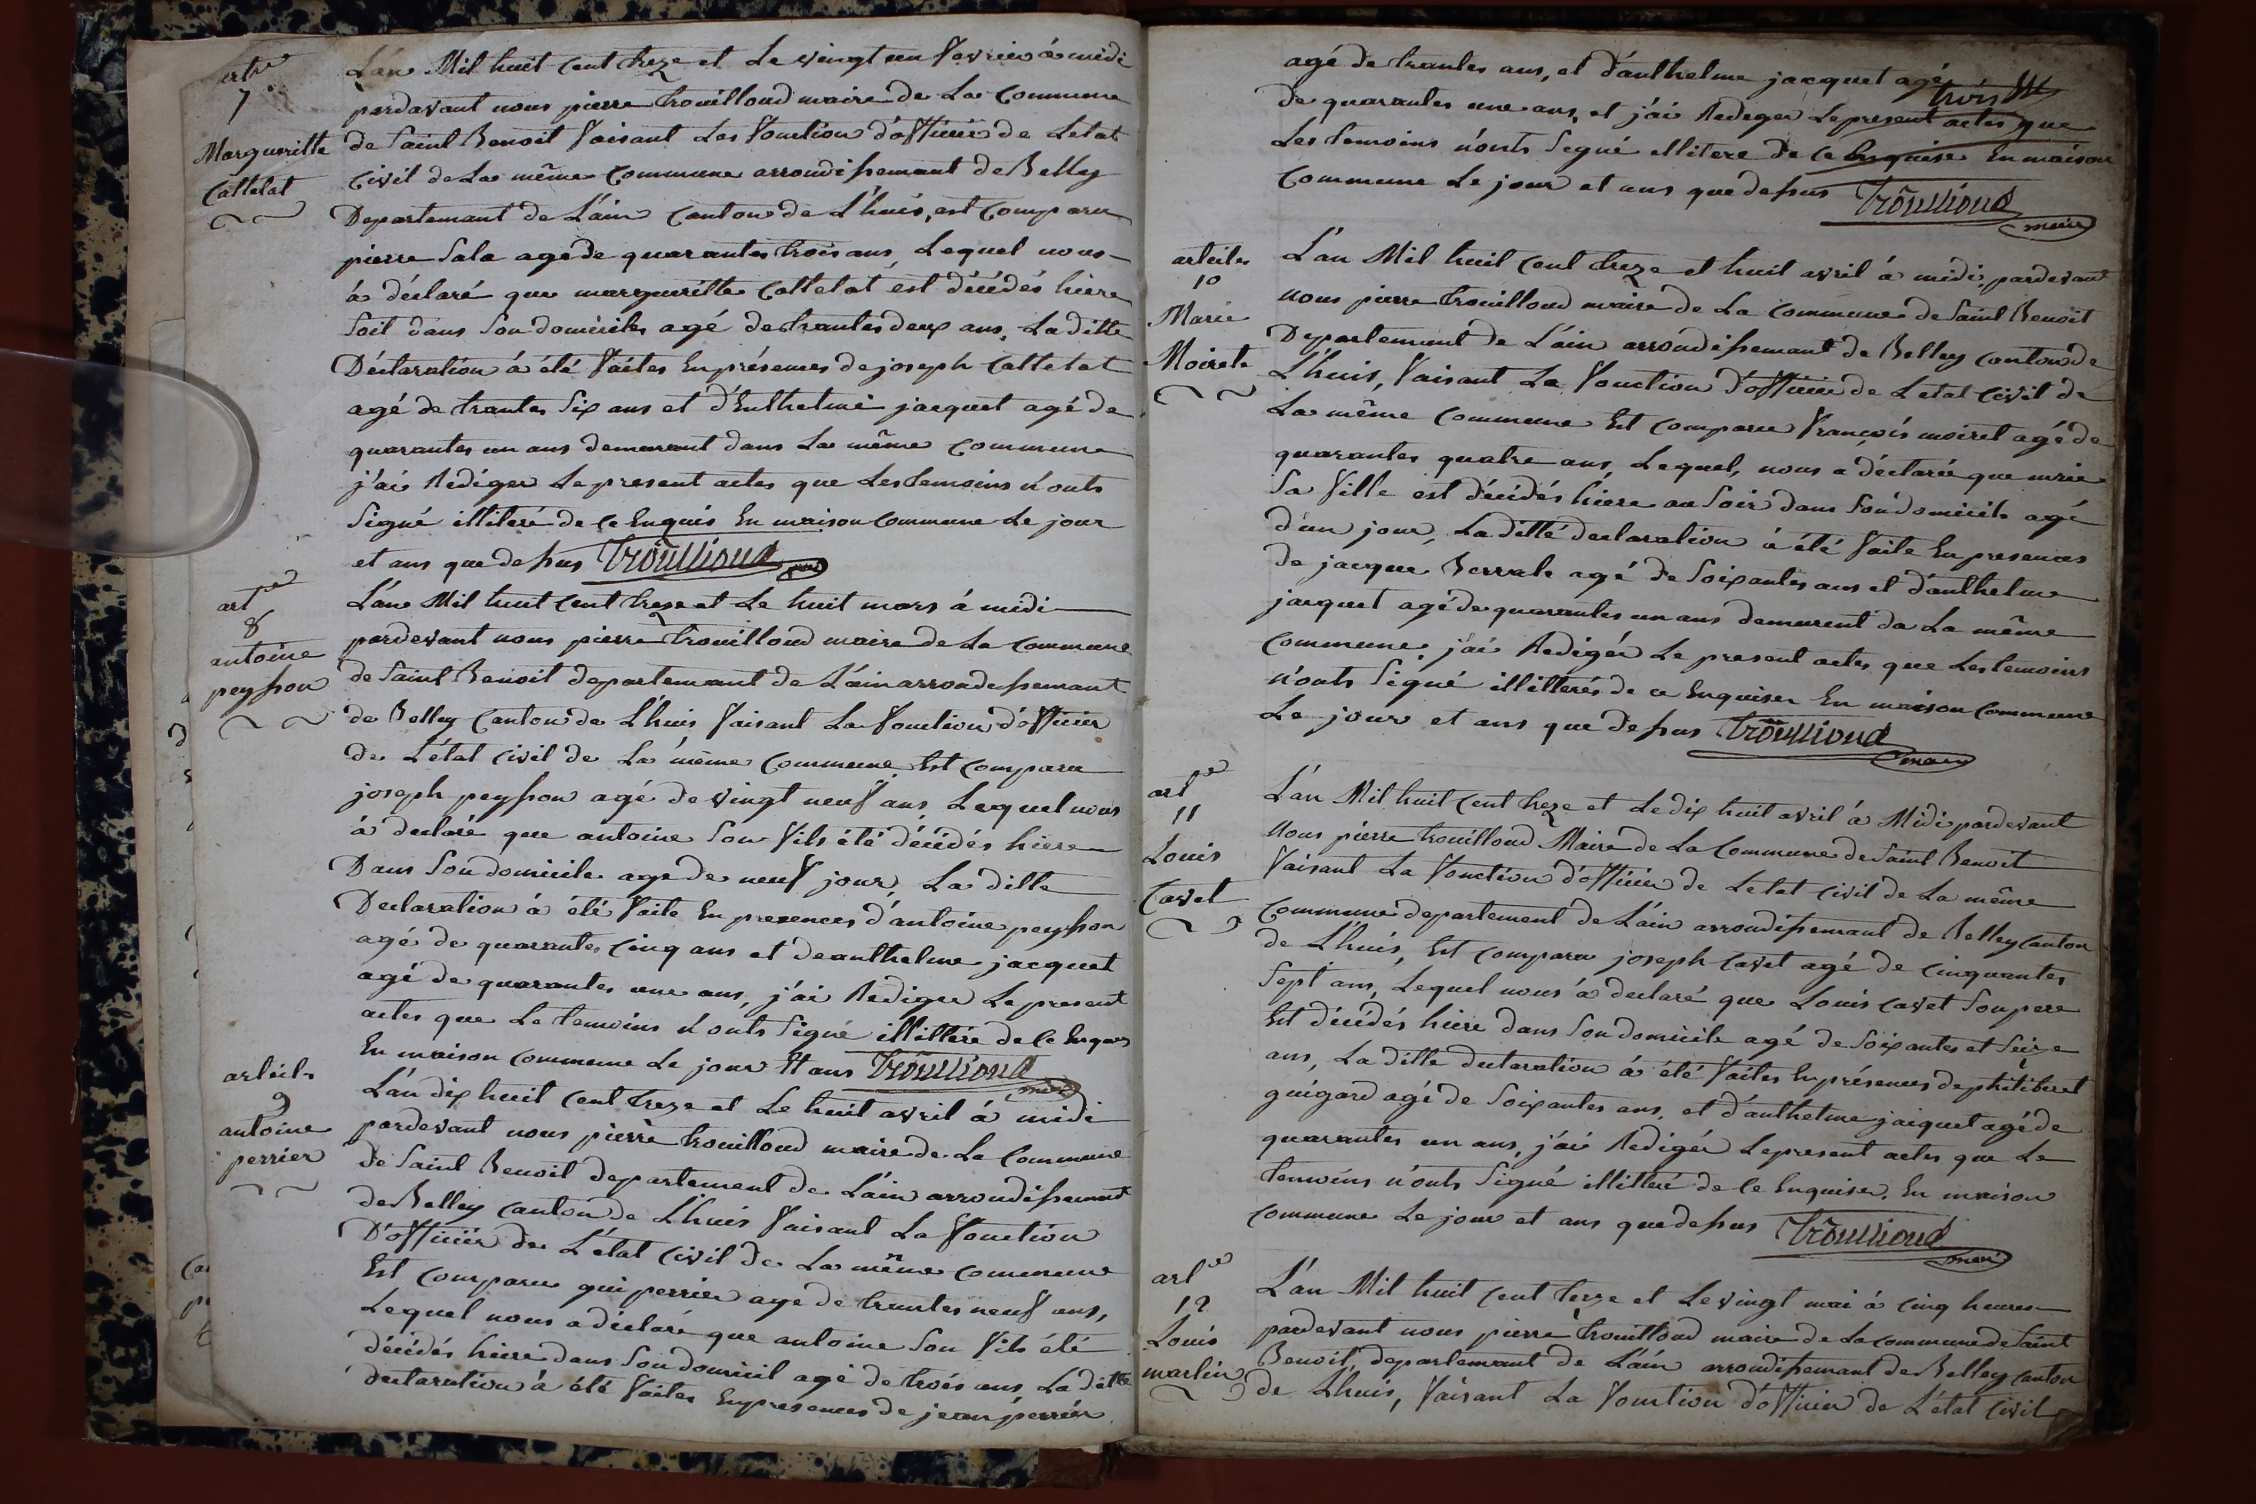 artre
7
Margueritte
Cattelat
L'an Mil huit cent treze et Le vingt un fevrier à midi
pardavant nous pierre trouilloud maire de La Commune
de Saint Benoit faisant Les fonction d'officier de Letat
Civil de La même Commune arrondissemant de Belley
Departemant de L'ain Canton de L'huis, est Comparu
pierre Sala agé de quarantes trois ans, Lequel nous
à déclaré que margueritte Cattelat est décédés hiere
Soit dans Son domicile agé de trantes deux ans, La ditte
Déclaration à été faites En présences de joseph Cattelat
agé de trantes Six ans et d'Enthelme jacquet agé de
quarantes un ans demurant dans La même Commune
j'ai Rédiger Le present actes que Les temoins n'onts
Signé illiteré de Ce Enquis En maison Commune Le jour
et ans que dessus Trouilloud maire
arte
8
antoine
peysson
L'an Mil huit Cent treze et Le huit mars à midi
pardevant nous pierre trouilloud maire de La Commune
de Saint Benoit departemant de L'ain arrondissemant
de Belley Canton de L'huis faisant La fonction d'officier
de L'état Civil de La même Commune Est Comparu
joseph peysson agé de vingt neuf ans, Lequel nous
à declaré que antoine Son fils été décédés hiere
Dans Son domicile age de neuf jour, La ditte
Declaration à été faite En presences d'antoine peysson
agé de quarantes Cinq ans et de anthelme jacquet
agé de quarantes une ans, j'ai Rediger Le present
actes que Le temoins n'onts Signé illittére de Ce Enques
En maison Commune Le jour Et ans Trouilloud maire
articles
9
antoine
perrier
L'an dix huit Cent treze et Le huit avril à midi
pardevant nous pierre trouilloud maire de La Commune
de Saint Benoit departement de L'ain arrondissemant
de Belley Canton de L'huis faisant La fonction
D'officier de L'état Civil de La même Commune
Est Comparu gui perrier age de trantes neuf ans,
Lequel nous a déclaré que antoine Son fils été
décédés hiere dans Son domicil agé de trois ans La ditte
declaration à été faites En presences de jean perrier
agé de trantes ans, et d'anthelme jacquet agé
de quarantes une ans, et j'ai Rediger Le present actes que
Les temoins n'onts Segné illitere de Ce Enquise En maison
Commune Le jour et ans que dessus Trouilloud
maire
articles
10
Marie
Moirete
L'an Mil huit Cent treze et huit avril à midi, pardevant
nous pierre trouilloud maire de La Commune de Saint Benoit
Departement de L'ain arrondissemant de Belley Canton de
L'huis, faisant La fonction D'officier de L'etat Civil de
La même Commune Est Comparu françois moiret agé de
quarantes quatre ans, Lequel, nous a déclaré que mrie
Sa fille est décédés hiere au Soir dans Son domicile agé
d'un jour, La ditté declaration à été faite En presences
de jacque Berrale agé de Soixantes ans et d'anthelme
jacquet agé de quarantes un ans demurent da La même
Commune, j'ai Redigér Le present actes que Les temoins
n'onts Signé illitterés de ce Enquiser En maison Commune
Le jour et ans que dessus Trouilloud
maire
arte
11
Louis
Cavet
L'an Mil huit Cent treze et Le dix huit avril à Midi pardevant
Nous pierre trouilloud Maire de La Commune de Saint Benoit
faisant La fonction d'officier de Letat Civil de La même
Commune departement de L'ain arrondissemant de Belley canton
de L'huis, Est Comparu joseph Cavet agé de Cinquantes
Sept ans, Lequel nous à declaré que Louis Cavet Son pere
Est décédés hiere dans Son domicile agé de Soixantes et Seize
ans, La ditte declaration à été faites En présences de philibert
guigard agé de Soixantes ans, et d'anthelme jaquet agé de
quarantes un ans, j'ai Redigér Le present actes que Le
temoins n'onts Signé illitteré de Ce Enquiser, En maison
Commune Le jour et ans que dessus Trouilloud
maire
arte
12
Louis
martin
L'an Mil huit Cent terze et Le vingt mai à Cinq heures
pardevant nous pierre trouilloud maire de La commune de Saint
Benoit, departemant de L'ain arrondissemant de Belley canton
de L'huis, faisant La fonction d'officier de L'état Civil